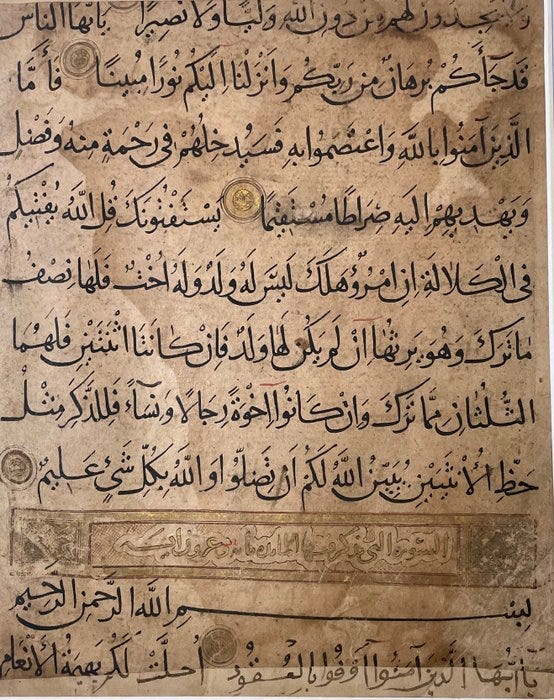 ولا يجدون لهم من دون الله وليا ولا نصيرا يا ايها الناس
قد جاءكم برهان من ربكم وانزلنا اليكم نورا مبينا فاما
الذين آمنوا بالله واعتصموا به فسيدخلهم في رحمة منه وفضل
ويهديهم اليه صراطا مستقيما يستفتونك قل الله يفتيكم
في الكلالة ان امرؤ هلك ليس له ولد وله اخت فلها نصف
ما ترك وهو يرثها ان لم يكن لها ولد فان كانتا اثنتين فلهما
الثلثان مما ترك وان كانوا اخوة رجالا ونساء فللذكر مثل
حظ الانثيين يبين الله لكم ان تضلوا والله بكل شئ عليم
السورة التي يذكر فيها المائدة وعشرون اية
بسم الله الرحمن الرحيم
يا ايها الذين آمنوا اوفوا بالعقود احلت لكم بهيمة الانعام